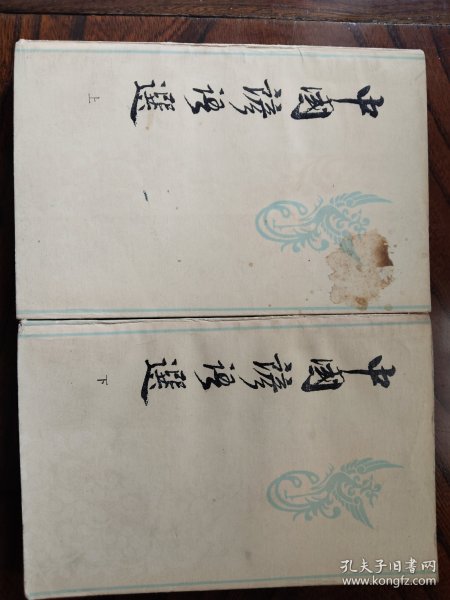 中國諺語選
上
中國諺語選
下
孔夫子旧书网
www.kongfz.com